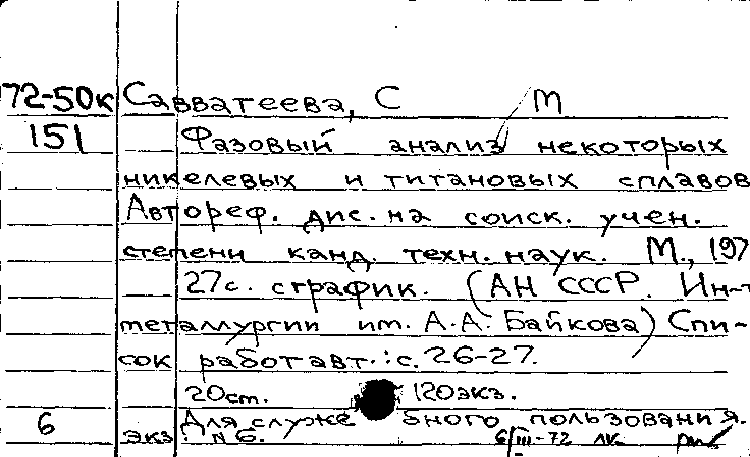 72-50к Савватеева, С М
151 Фазовый анализ некоторых
никелевых и титановых сплавов
Автореф. дис. на соиск. учен.
степени канд. техн. наук. М., 197
27с. сграфик. (АН СССР. Ин-т
металлургии им. А.А. Байкова) Спи-
сок работ авт.: с. 26-27.
20см. 120экз.
6 Для служе бного пользования.
экз. N6. 6/III-72